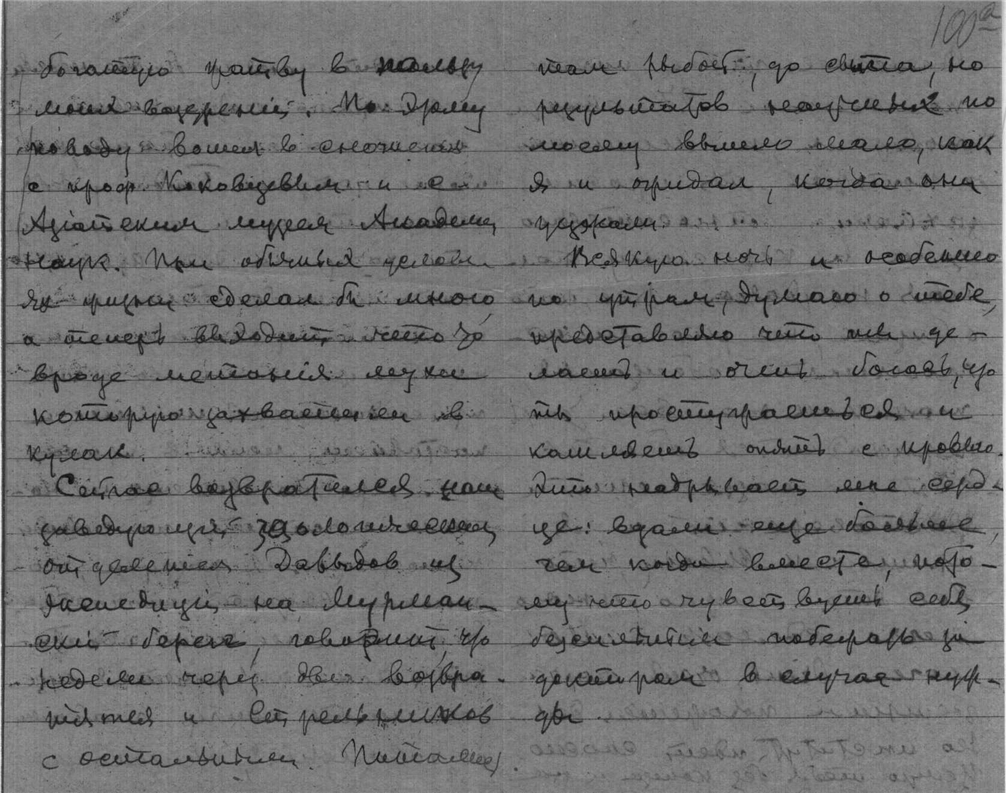 100а
богатую жатву в пользу
моих воззрений. По этому
поводу вошел в сношения
с проф Коковцевым и с
Азіатским музеем Академіи
Наук. При обычных услові
ях жизни сделал бы много,
а теперь выходит что то
вроде метанія мухи
которую захватили в
кулак.
Сейчас возвратился наш
заведующій зоологическим
отделеніем Давыдов из
экспедиціи на Мурман-
скій берег, говорит, что
недели через две возвра-
тятся и Стрельников
с остальными. Питались
там рыбой, до сыта, но
результатов научных по
моему вышло мало, как
я и ожидал, когда они
уезжали.
Всякую ночь и особенно
по утрам, думаю о тебе,
представляю что ты де-
лаешь и очень боюсь, что
ты простужаешься и
кашляешь опять с кровью.
Это надрывает мне серд-
це: вдали еще больше,
чем когда вместе, пото-
му что чувствуешь себя
безсильным побежать за
доктором в случае нуж-
ды.